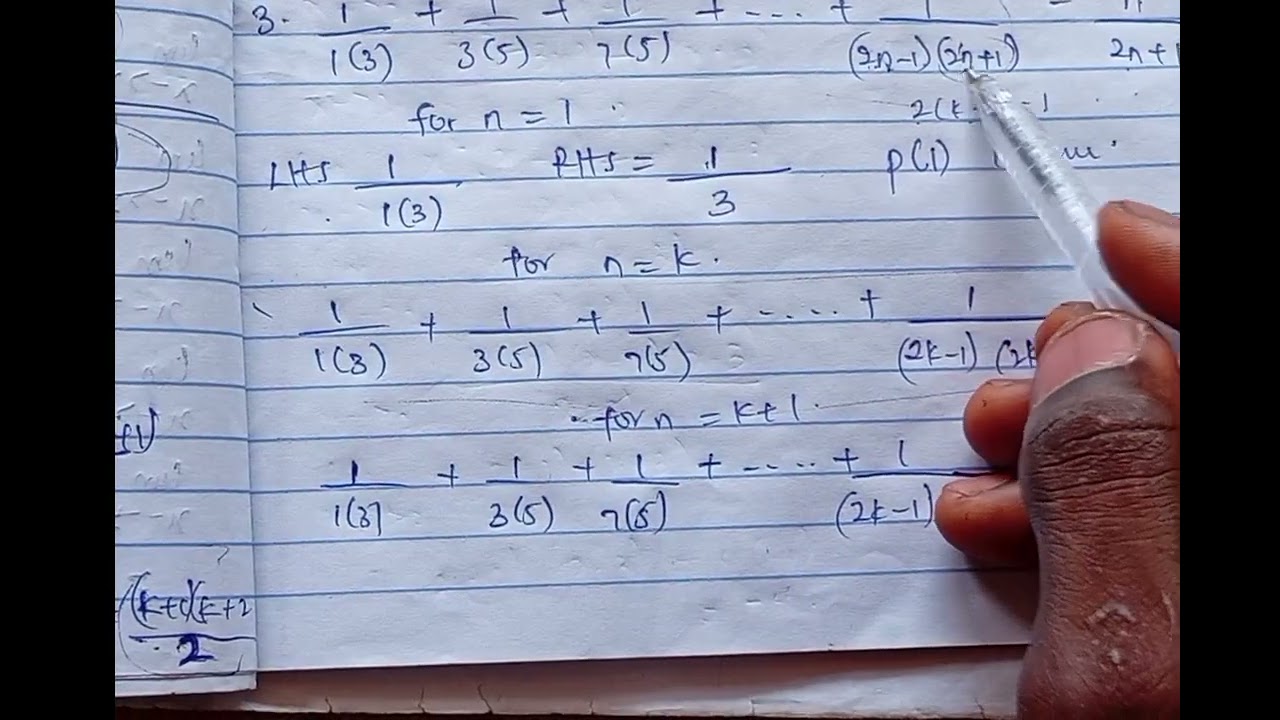 3. 1/1(3) + 1/3(5) + 1/7(5) + .... + 1/(2n-1)(2n+1) = n/2n+1
for n = 1
LHS 1/1(3) RHS = 1/3 p(1)
for n = k.
1/1(3) + 1/3(5) + 1/7(5) + ..... + 1/(2k-1)(2k
for n = k+1.
1/1(3) + 1/3(5) + 1/7(5) + .... + 1/(2k-1)
+1)
(k+1)(k+2
2